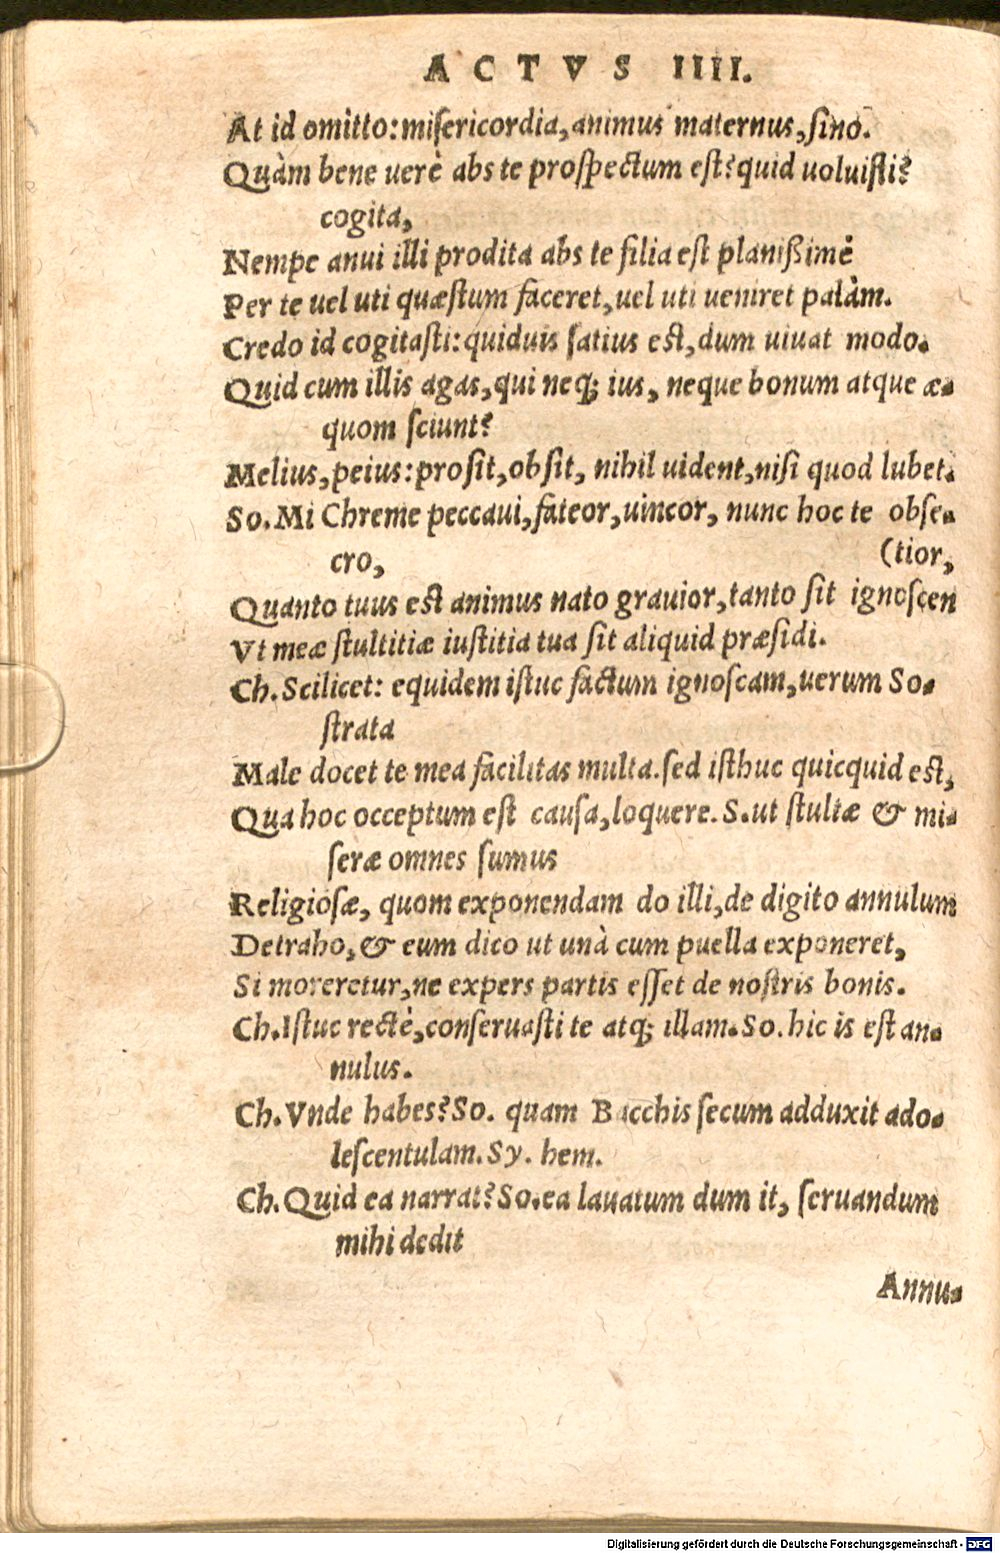 ACTVS IIII.
At id omitto: misericordia, animus maternus, sino.
Quàm bene uerè abs te prospectum est? quid uoluisti?
cogita,
Nempe anui illi prodita abs te filia est planißimè
Per te uel uti quæstum faceret, uel uti ueniret palàm.
Credo id cogitasti: quiduis satius est, dum uiuat modo.
Quid cum illis agas, qui neq; ius, neque bonum atque æ-
quom sciunt?
Melius, peius: prosit, obsit, nihil uident, nisi quod lubet.
So. Mi Chreme peccaui, fateor, uincor, nunc hoc te obse-
cro, (tior,
Quanto tuus est animus nato grauior, tanto sit ignoscen
Vt meæ stultitiæ iustitia tua sit aliquid præsidi.
Ch. Scilicet: equidem istuc factum ignoscam, uerum So-
strata
Male docet te mea facilitas multa. sed isthuc quicquid est,
Qua hoc occeptum est causa, loquere. S. ut stultæ & mi-
seræ omnes sumus
Religiosæ, quom exponendam do illi, de digito annulum
Detraho, & eum dico ut unà cum puella exponeret,
Si moreretur, ne expers partis esset de nostris bonis.
Ch. Istuc rectè, conseruasti te atq; illam. So. hic is est an-
nulus.
Ch. Vnde habes? So. quam Bacchis secum adduxit ado-
lescentulam. Sy. hem.
Ch. Quid ea narrat? So. ea lauatum dum it, seruandum
mihi dedit
Annu-
Digitalisierung gefördert durch die Deutsche Forschungsgemeinschaft - DFG